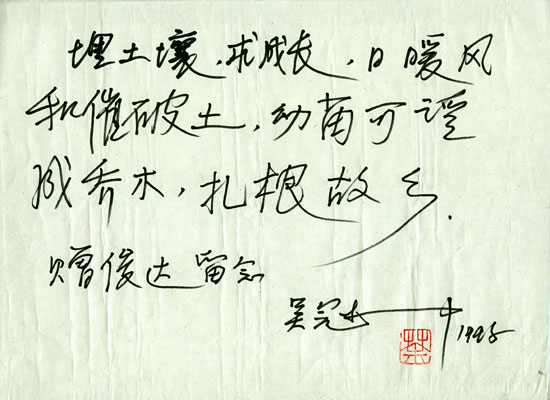 埋土壤,求成长,日暖风
和催破土,幼苗可望
成乔木,扎根故乡.
赠俊达留念
吴冠中 1995